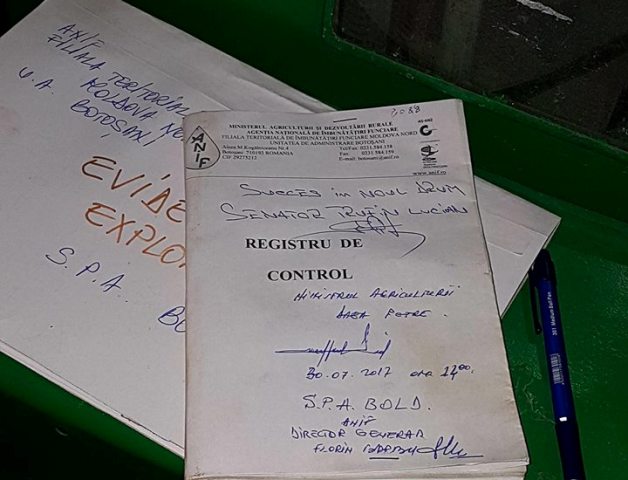 ANIF
FILIALA TERITORIAL
MOLDOVA NO
U.A. BOTOȘANI
EVIDE
EXPLO
S.P.A.
BO
ANIF
MINISTERUL AGRICULTURII ȘI DEZVOLTĂRII RURALE
AGENȚIA NAȚIONALĂ DE ÎMBUNĂTĂȚIRI FUNCIARE
FILIALA TERITORIALĂ DE ÎMBUNĂTĂȚIRI FUNCIARE MOLDOVA NORD
UNITATEA DE ADMINISTRARE BOTOȘANI
Aleea M.Kogălniceanu Nr.4
Botosani 710165 ROMANIA
CIF 29275212
Tel/Fax 0231.584.158
Fax 0231.584.159
E-mail: botosani@anif.ro
www.anif.ro
SUCCES în NOUL DRUM
SENATOR TRUFIN LUCIAN
REGISTRU DE
CONTROL
MINISTRUL AGRICULTURII
DAEA PETRE.
30.07.2017 ora
S.P.A. BOLD.
ANIF
DIRECTOR GENERAL
FLORIN